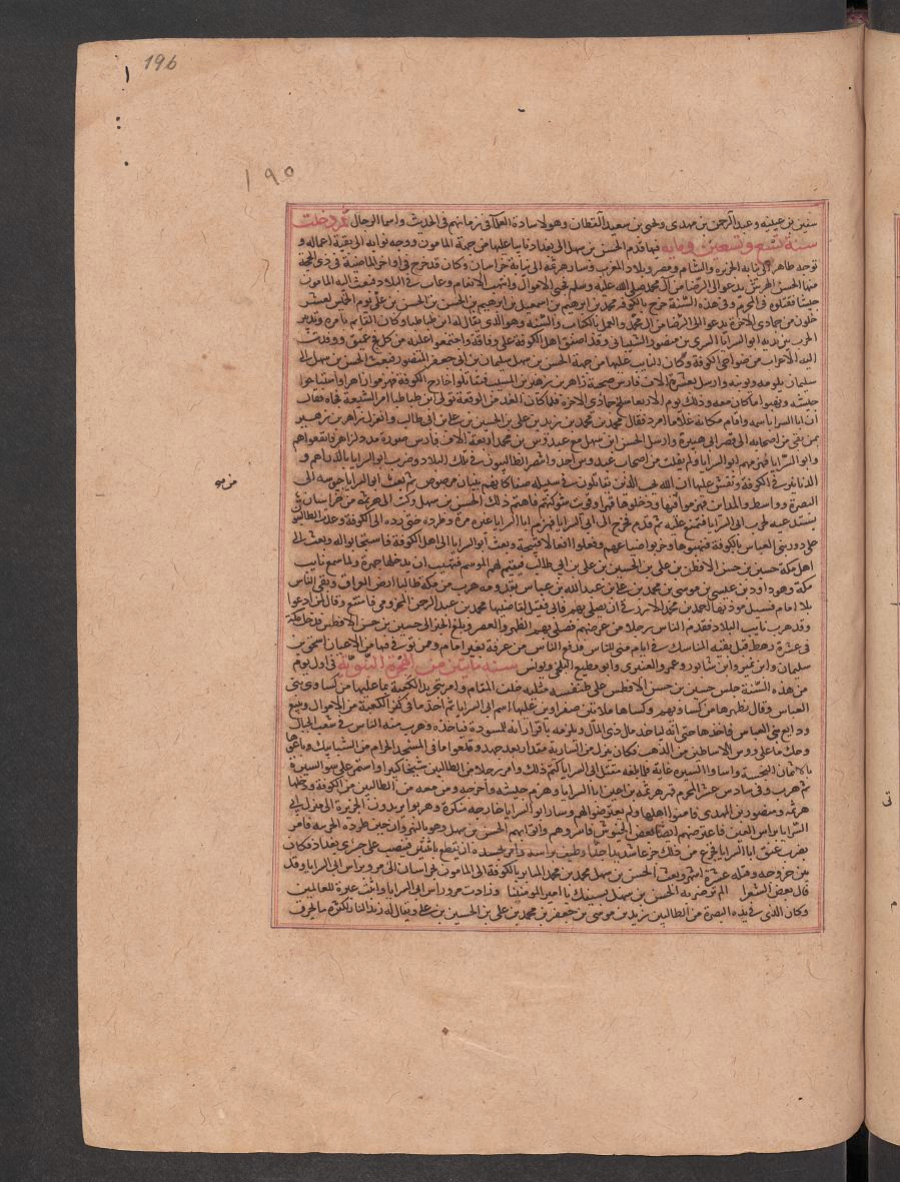 196
١٩٥
سفين بن عيينه وعبد الرحمن بن مهدى ويحيى بن سعيد القطان وهولا سادة العلما فى زمانهم فى الحديث واسما الرجال ثم دخلت
سنة تسع وتسعين ومايه فيها قدم الحسن بن سهل الى بغداد نايبا عليها من جهة المامون ووجه نوابه الى بقية اعماله و
توجه طاهر الى نيابة الجزيره والشام ومصر وبلاد المغرب وسار هرثمه الى نيابة خراسان وكان قد خرج فى اواخر الماضية فى ذى الحجة
منها الحسن الهرش يدعو الى الرضا من آل محمد صلى الله عليه وسلم فجبى الاموال وانتهب الانعام وعاث فى البلاد فبعث اليه المامون
جيشا فقتلوه فى المحرم وفى هذه السنة خرج بالكوفه محمد بن ابرهيم بن اسمعيل بن ابرهيم بن الحسن بن الحسن بن على يوم الخميس لعشر
خلون من جمادى الاخرة يدعو الى الرضا من آل محمد والعمل بالكتاب والسنة وهو الذى يقال له ابن طباطبا وكان القايم بامره وتدبير
الحرب بين يديه ابو السرايا السرى بن منصور الشيبانى وقد اصفق اهل الكوفة على وفاقه واجتمعوا عليه من كل فج عميق ووفدت
اليه الاعراب من ضواحى الكوفة وكان النايب عليها من جهة الحسن بن سهل سليمان بن ابى جعفر المنصور فبعث الحسن بن سهل الى
سليمان يلومه ويونبه وارسل بعشرة الاف فارس صحبة زاهر بن زهير بن المسيب فتقاتلوا خارج الكوفة فهزموا زاهرا واستباحوا
جيشه ونهبوا ما كان معه وذلك يوم الاربعا سلخ جمادى الاخرة فلما كان الغد من الوقعة توفى ابن طباطبا امير الشيعة فجاه فيقال
ان ابا السرايا سمه واقام مكانه غلاما امرد يقال محمد بن محمد بن زيد بن على بن الحسين بن على بن ابى طالب وانعزل زاهر بن زهير
بمن بقى من اصحابه الى قصر ابن هبيرة وارسل الحسن ابن سهل مع عبدوس بن محمد اربعة الاف فارس صورة مدد لزاهر فاتقعوا هم
وابو السرايا فهزمهم ابو السرايا ولم يفلت من اصحاب عبدوس احد وانتشر الطالبيون فى تلك البلاد وضرب ابو السرايا بالدراهم و
الدنانير فى الكوفة ونقش عليها ان الله يحب الذين يقاتلون فى سبيله صفا كانهم بنيان مرصوص ثم بعث ابو السرايا جيوشه الى
البصرة وواسط والمداين فهزموا نوابها ودخلوها قهرا وقويت شوكتهم فاهتم ذلك الحسن بن سهل وكتب الى هرثمة من خراسان
يستدعيه لحرب ابى السرايا فتمنع عليه ثم قدم فخرج الى ابى السرايا فهزم ابا السرايا غير مره وطرده حتى رده الى الكوفة وعدا الطالبيون
على دور بنى العباس بالكوفة فنهبوها وخربوا ضياعهم وفعلوا افعالا قبيحة وبعث ابو السرايا الى اهل الكوفة فاستجابوا له وبعث الى
اهل مكة حسين بن حسن الافطس بن على بن الحسين بن على بن ابى طالب ليقيم لهم الموسم فتهيب ان يدخلها جهرة ولما سمع نايب
مكة وهو داود بن عيسى بن موسى بن محمد بن على بن عبد الله بن عباس بقدومه هرب من مكة طالبا ارض العراق وبقى الناس
بلا امام فسيل موذنها احمد بن محمد الازرقى ان يصلى بهم فابى فقيل لقاضيها محمد بن عبد الرحمن المخزومى فامتنع وقال لمن ادعوا
وقد هرب نايب البلاد فقدم الناس رجلا من عرضهم فصلى بهم الظهر والعصر وبلغ الخبر الى حسين بن حسن الافطس فدخل مكة
فى عشرة رهط قبل بقية المناسك فى ايام منى للناس فدفع الناس من عرفة بغير امام وممن توفى فيها من الاعيان اسحق بن
سليمان وابن نمير وابن شابور وعمرو العنبرى وابو مطيع البلخى ويونس سنة مايتين من الهجرة النبوية فى اول يوم
من هذه السنة جلس حسين بن حسن الافطس على طنفسه مثلثه خلف المقام وامر بتجريد الكعبة مما عليها من كساوى بنى
العباس وقال نطهرها من كساويهم وكساها ملاتين صفراوين عليها اسم ابى السرايا ثم اخذ ما فى كنز الكعبة من الاموال وتتبع
ودايع بنى العباس فاخذها حتى انه لياخذ مال ذى المال ويلزمه باقرار انه للمسوده فياخذه وهرب منه الناس فى شعب الجبال
وحك ما على رووس الاساطين من الذهب فكان ينزل من السارية مقدار بعد جهد وقلعوا ما فى المسجد الحرام من الشبابيك وباعوها
بالاثمان البخسة واساوا السيرة غاية فلما بلغه مقتل ابى السرايا كتم ذلك وامر رجلا من الطالبيين شيخا كبيرا واستمر على سو السيرة
ثم هرب وفى سادس عشر المحرم قهر هرثمه بن اعين ابا السرايا وهزم جيشه واخرجه ومن معه من الطالبيين من الكوفة ودخلها
هرثمه ومنصور بن المهدى فامنوا اهلها ولم يعترضوا لهم وسار ابو السرايا
السرايا براس العين فاعترضهم ايضا بعض الجيوش فاسروهم واتوا بهم الحسن بن سهل وهو بالنهروان حين طردته الحربيه فامر
بضرب عنق ابا السرايا فجزع من ذلك جزعا شديدا جدا وطيف براسه وامر بجسده ان يقطع باثنتين فينصب على جسرى بغداد فكان
بين خروجه وقتله عشرة اشهر وبعث الحسن بن سهل محمد بن محمد الى المامون بخراسان الى مرو براس ابى السرايا وقد
قال بعض الشعرا الم تر ضربه الحسن بن سهل بسيفك يا امير المومنينا وزادت مرو راس ابى السرايا وابقت عبرة للعالمين
وكان الذى فى يده البصرة من الطالبيين زيد بن موسى بن جعفر بن محمد بن على بن الحسين بن على ويقال له زيد النار لكثره ما احرق